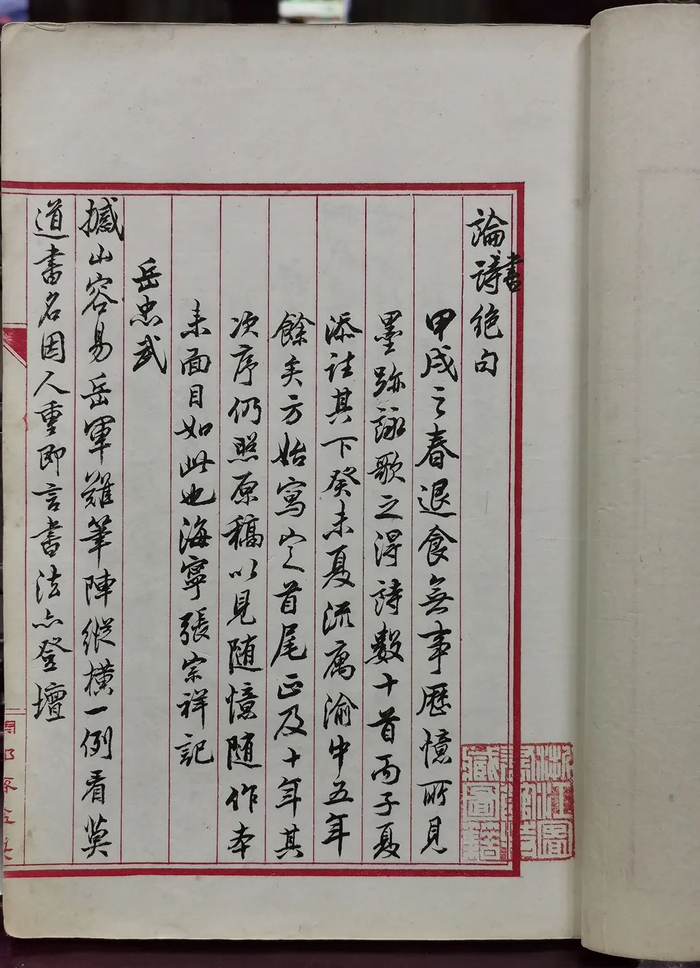 論詩絕句
書
甲戌之春退食無事歷憶所見
墨跡詠歌之得詩數十首丙子夏
添註其下癸未夏流寓渝中五年
餘矣方始寫定首尾正及十年其
次序仍照原稿以見隨憶隨作本
来面目如此也海寧張宗祥記
岳忠武
撼山容易岳軍難筆陣縱橫一例看莫
道書名因人重即言書法亦登壇
浙江圖